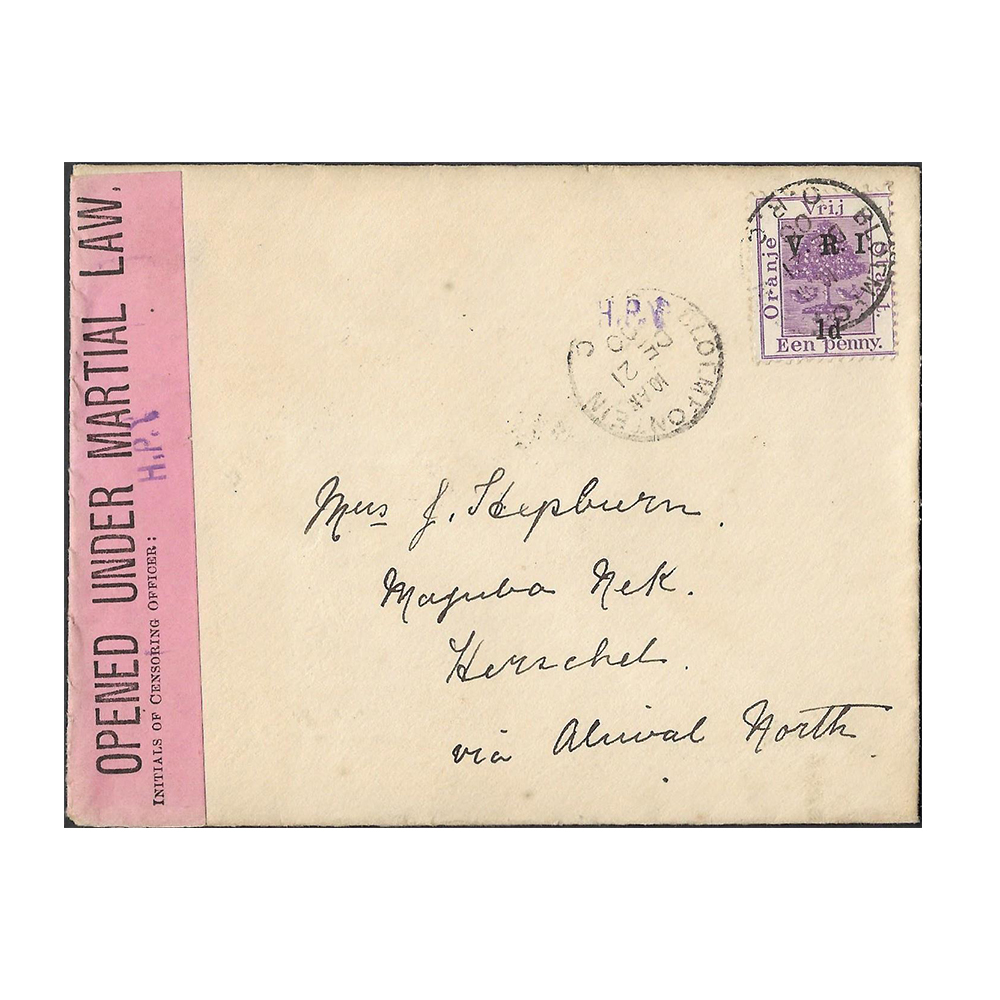 OPENED UNDER MARTIAL LAW.
INITIALS OF CENSORING OFFICER:
H.P.Y
H.P.Y
BLOEMFONTEIN
DE 21
00
10 AM
C
BLOEMFO
O.R.C
Oranje Vrij
V. R. I.
1d
Een penny.
Mrs J. Hepburn.
Maguba Nek.
Herschel.
via Aliwal North